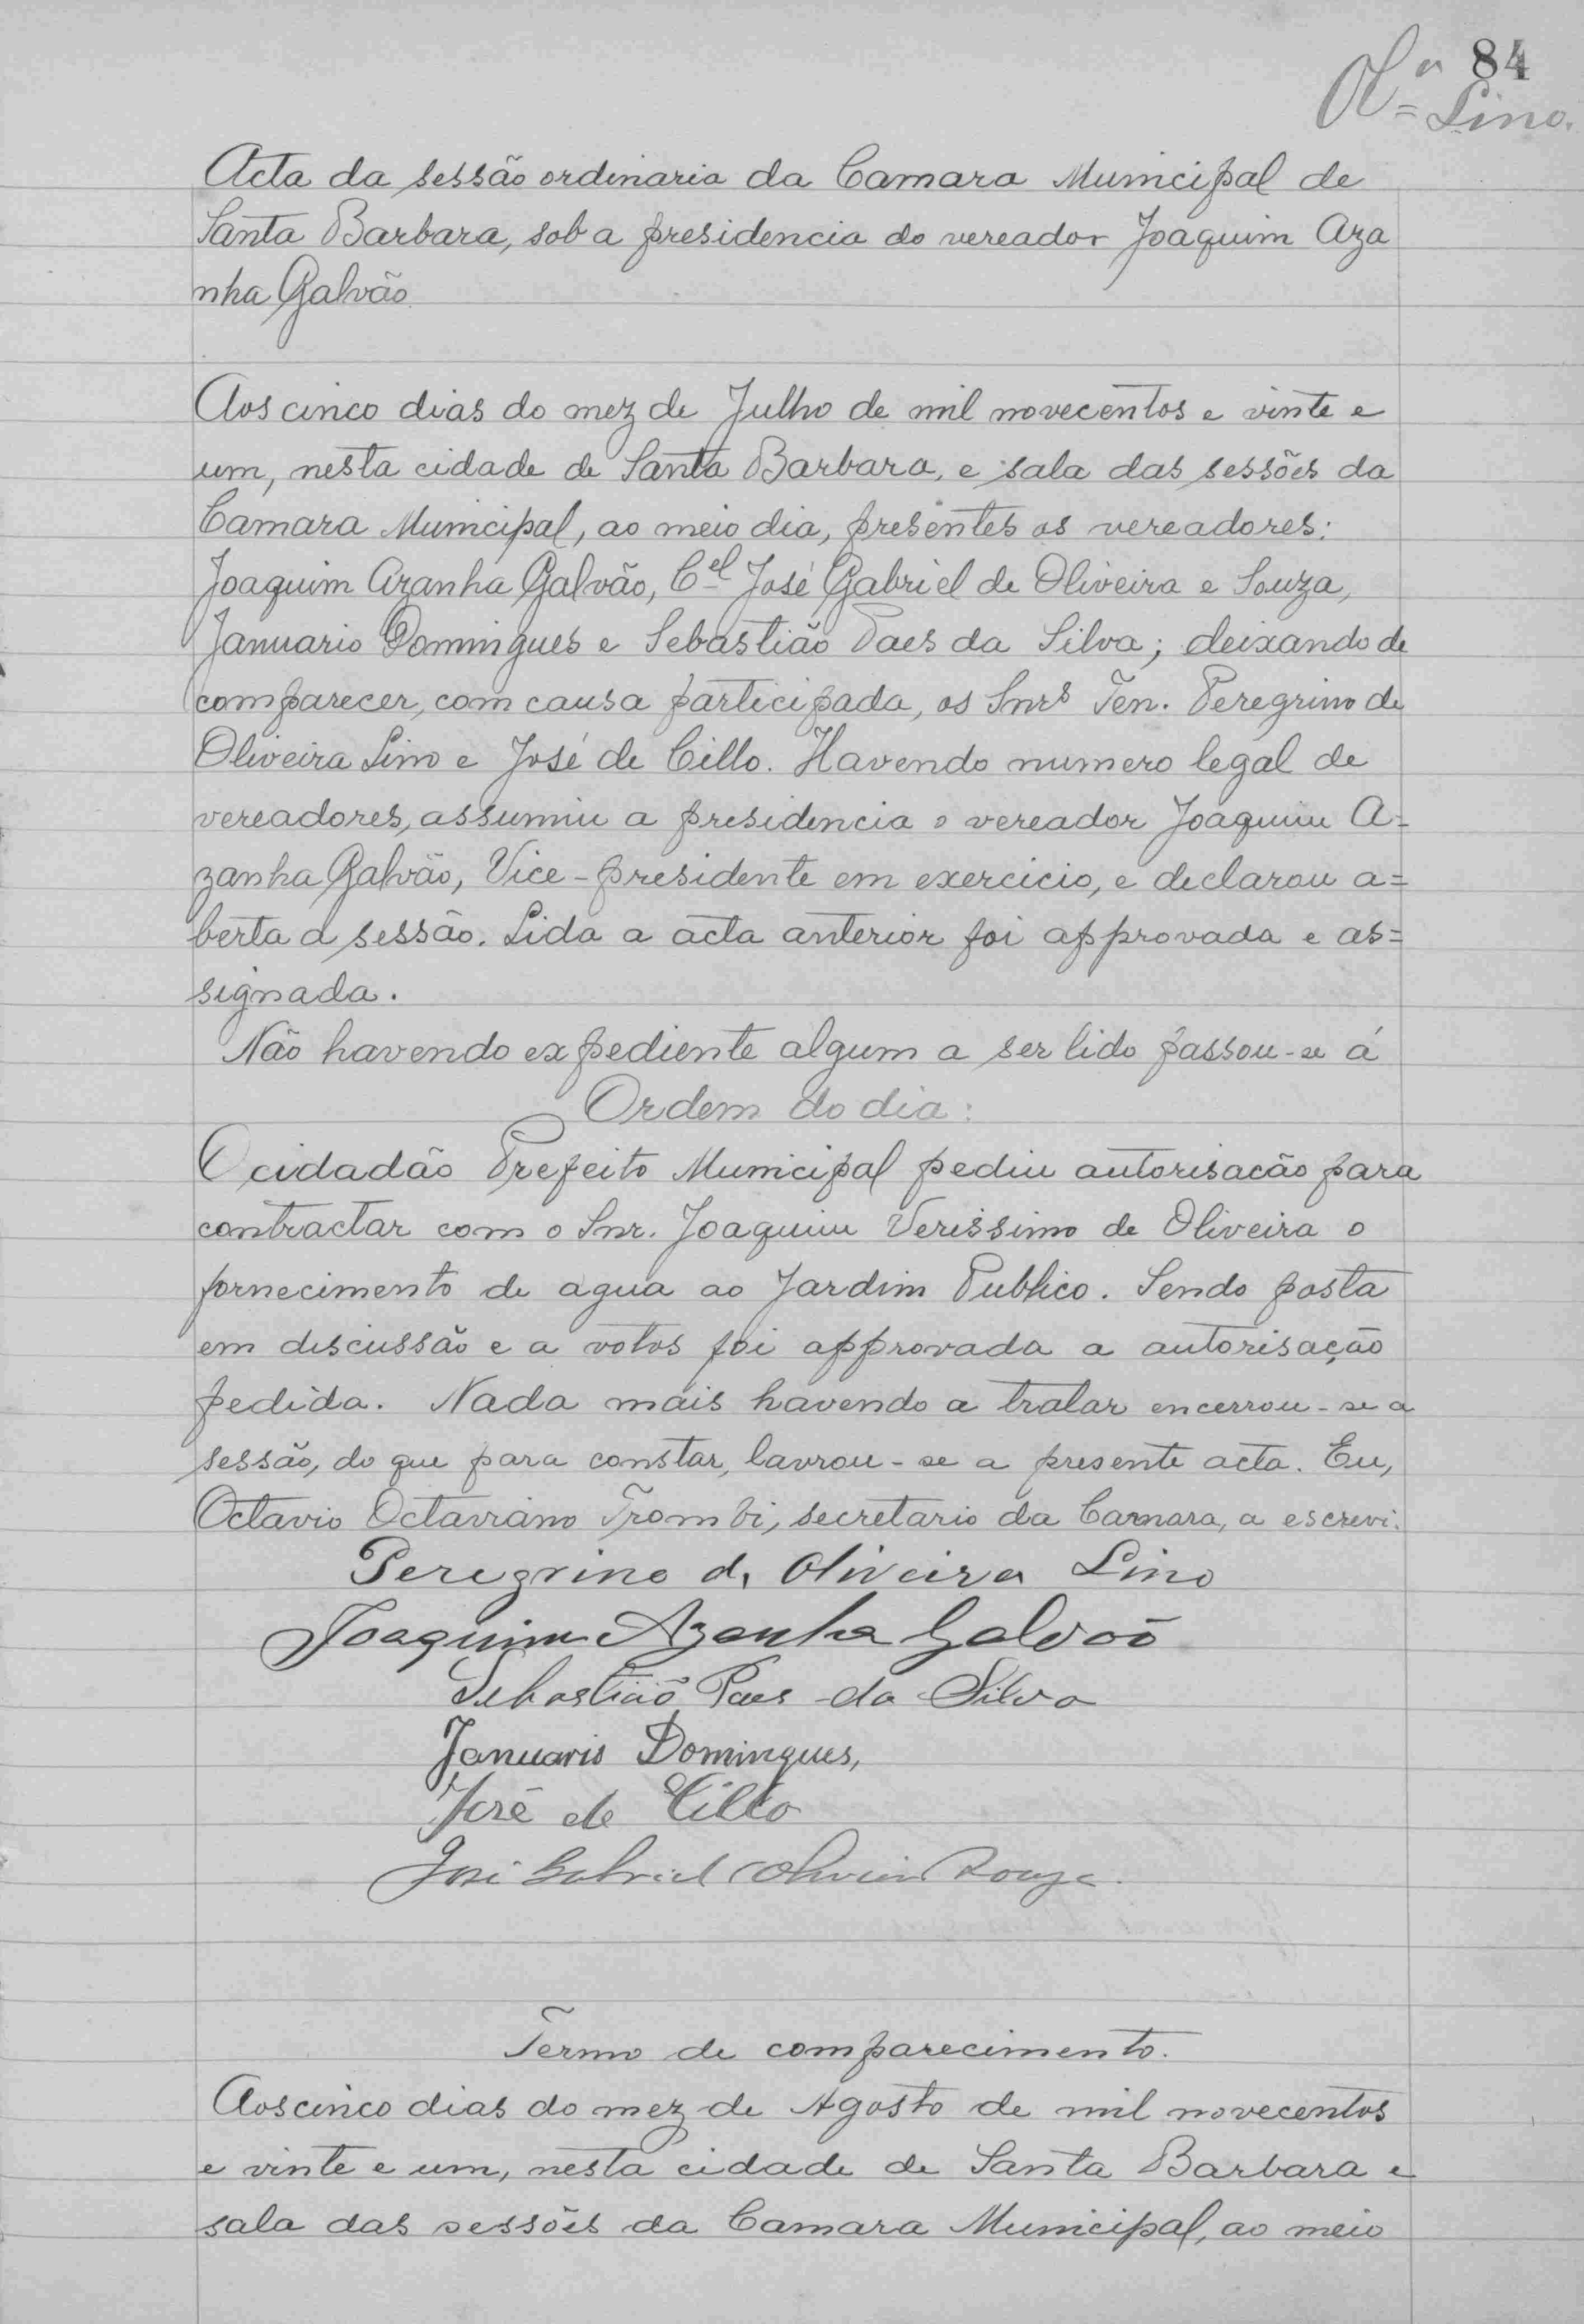 84
Ol.ª Lino.
Acta da sessão ordinaria da Camara Municipal de
Santa Barbara, sob a presidencia do vereador Joaquim Aza
nha Galvão.
Aos cinco dias do mez de Julho de mil novecentos e vinte e
um, nesta cidade de Santa Barbara, e sala das sessões da
Camara Municipal, ao meio dia, presentes os vereadores:
Joaquim Azanha Galvão, Cel José Gabriel de Oliveira e Souza,
Januario Domingues e Sebastião Paes da Silva; deixando de
comparecer, com causa participada, os Snrs Ten. Peregrino de
Oliveira Lino e José de Cillo. Havendo numero legal de
vereadores, assumiu a presidencia o vereador Joaquim A-
zanha Galvão, Vice-presidente em exercicio, e declarou a=
berta a sessão. Lida a acta anterior foi approvada e as=
signada.
Não havendo expediente algum a ser lido passou-se á
Ordem do dia:
O cidadão Prefeito Municipal pediu autorisacão para
contractar com o Snr. Joaquim Verissimo de Oliveira o
fornecimento de agua ao Jardim Publico. Sendo posta
em discussão e a votos foi approvada a autorisação
pedida. Nada mais havendo a tratar encerrou-se a
sessão, do que para constar, lavrou-se a presente acta. Eu,
Octavio Octaviano Trombi, secretario da Camara, a escrevi.
Peregrino d, Oliveira Lino
Joaquim Azanha Galvão
Sebastião Paes da Silva
Januario Domingues,
José de Cillo
José Gabriel Oliveira Souza.
Termo de comparecimento.
Aos cinco dias do mez de Agosto de mil novecentos
e vinte e um, nesta cidade de Santa Barbara e
sala das sessões da Camara Municipal, ao meio